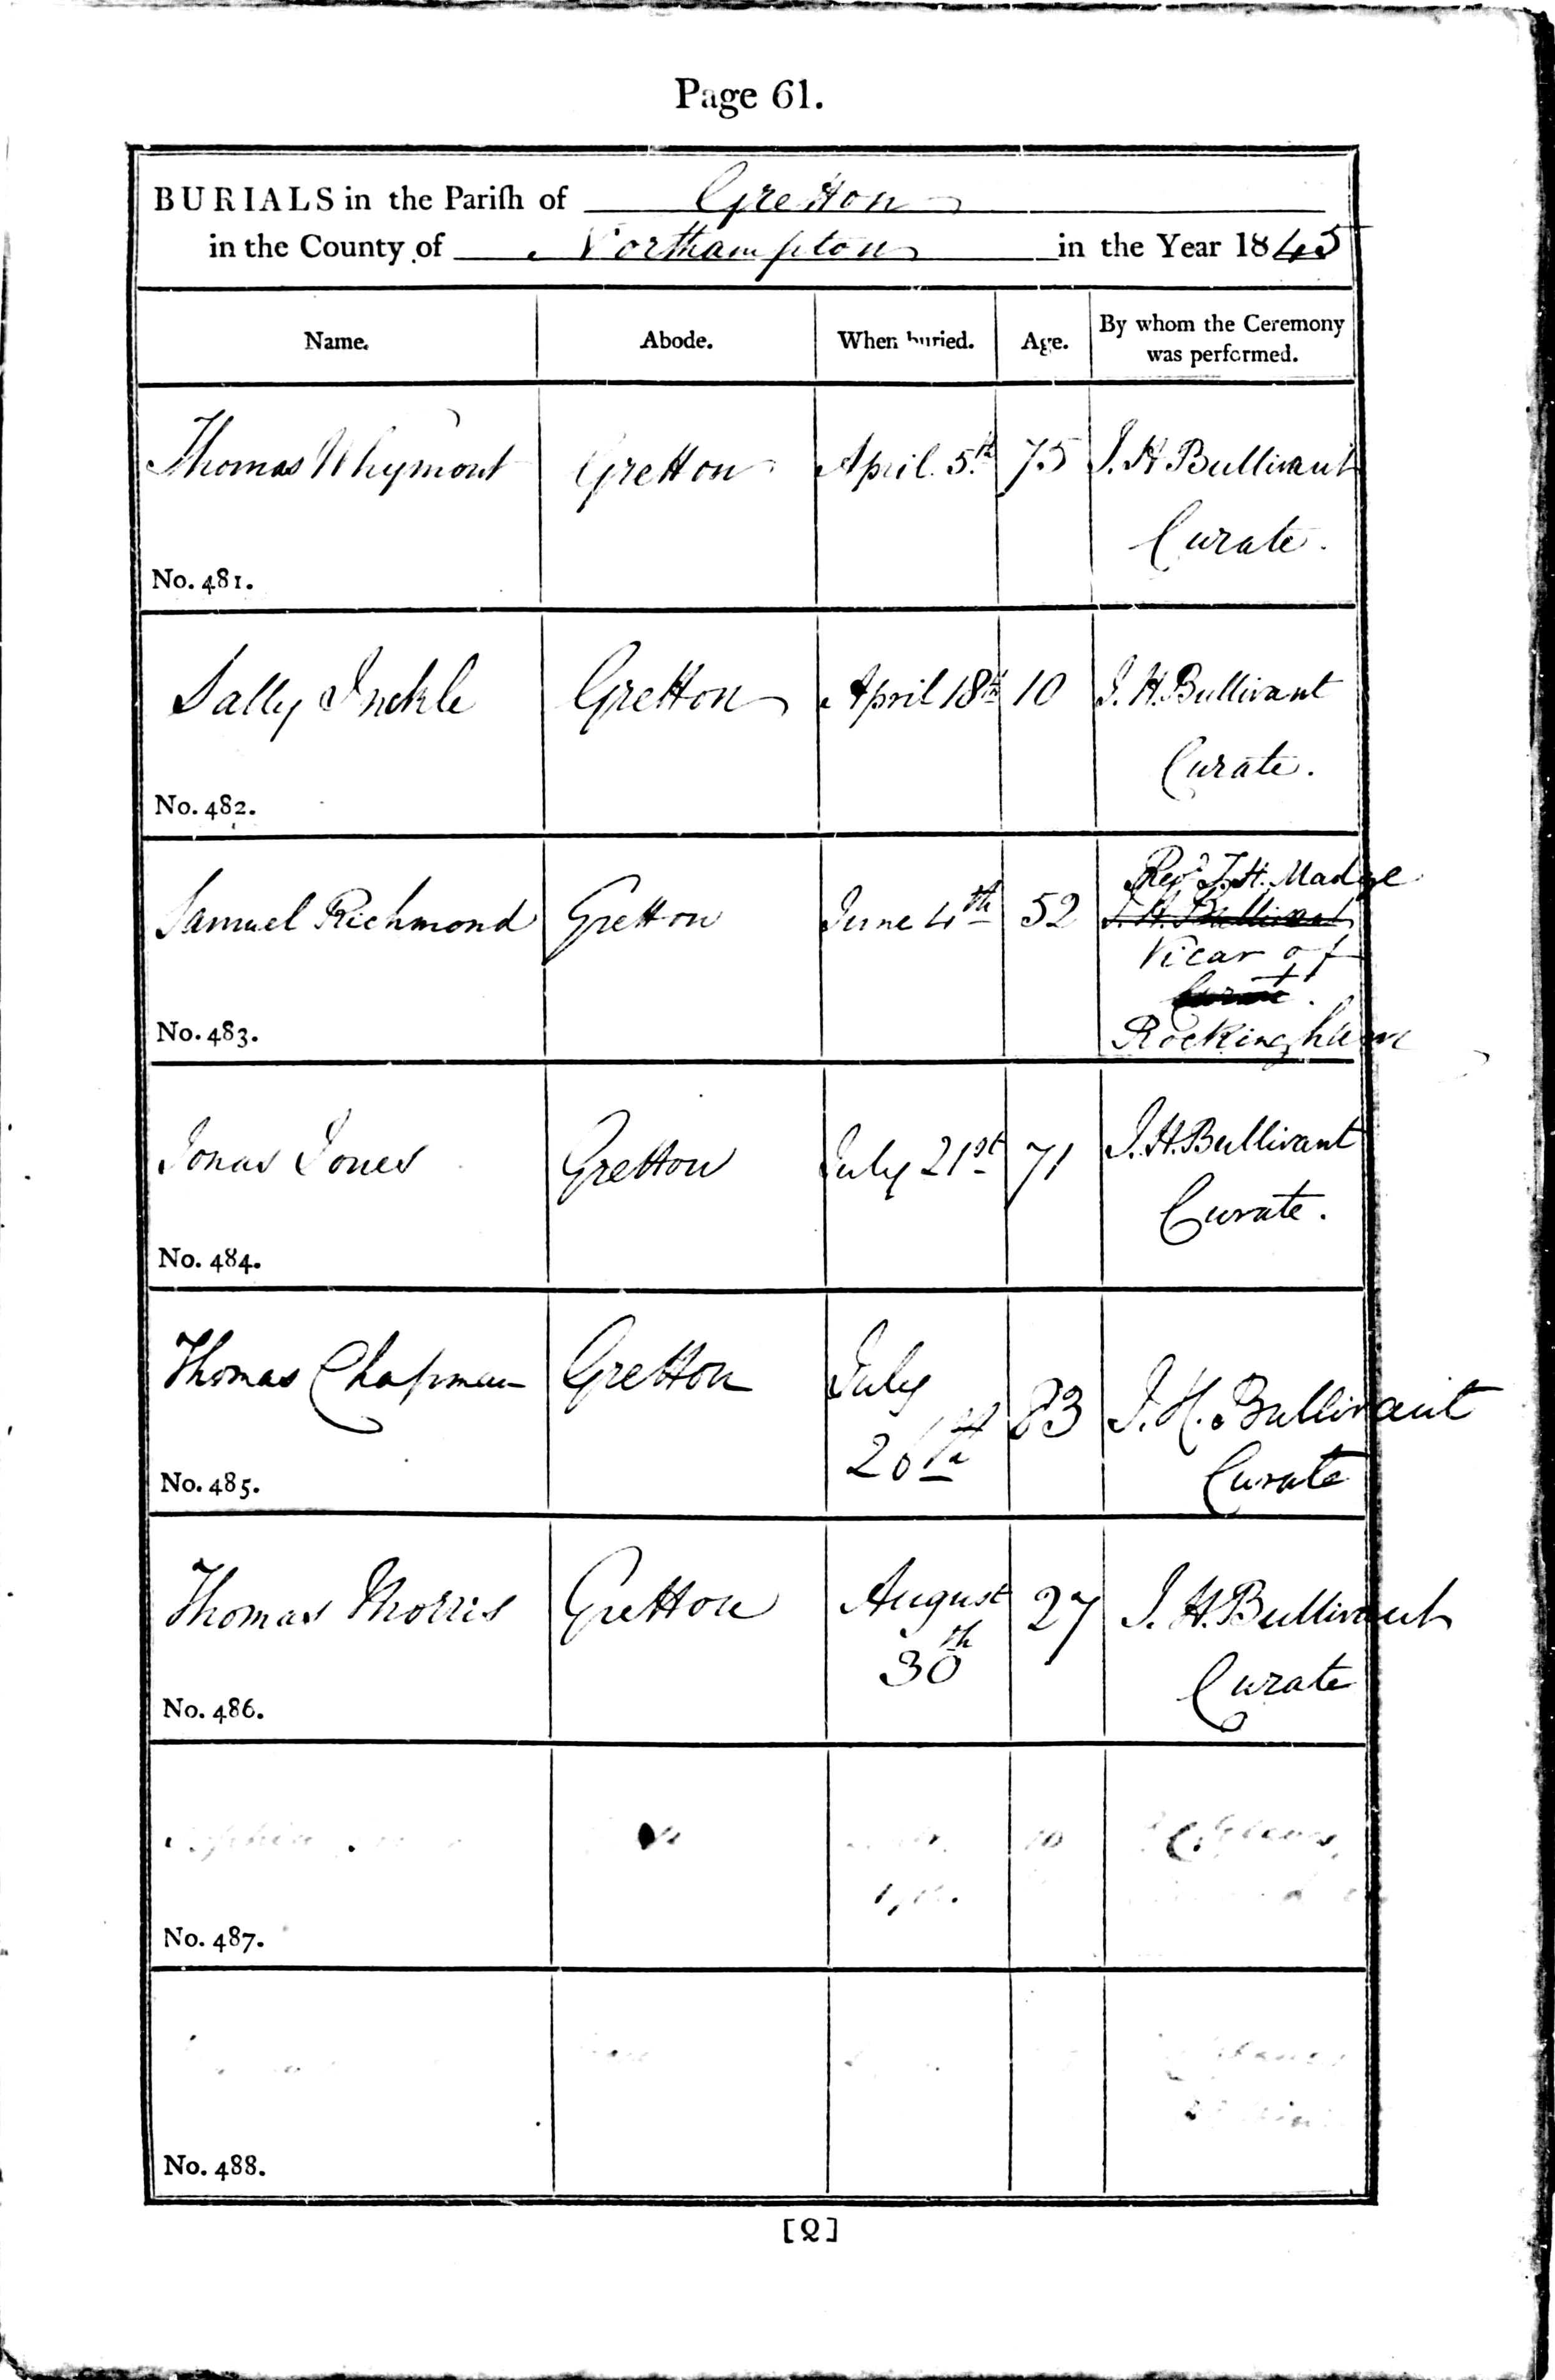 Page 61.
BURIALS in the Pariſh of Gretton
in the County of Northampton in the Year 1845
Name. Abode. When buried. Age. By whom the Ceremony was performed.
Thomas Whymont Gretton April 5th 75 J. H. Bullivant
Curate.
No. 481.
Sally Inchle Gretton April 18th 10 J. H. Bullivant
Curate.
No. 482.
Revd J. H. Madge
Samuel Richmond Gretton June 4th 52 J. H. Bullivant
Vicar of
Curate.
No. 483. Rockingham
Jonas Jones Gretton July 21st 71 J. H. Bullivant
Curate.
No. 484.
Thomas Chapman Gretton July 83 J. H. Bullivant
26th Curate
No. 485.
Thomas Morris Gretton August 27 J. H. Bullivant
30th Curate
No. 486.
No. 487.
No. 488.
[Q]